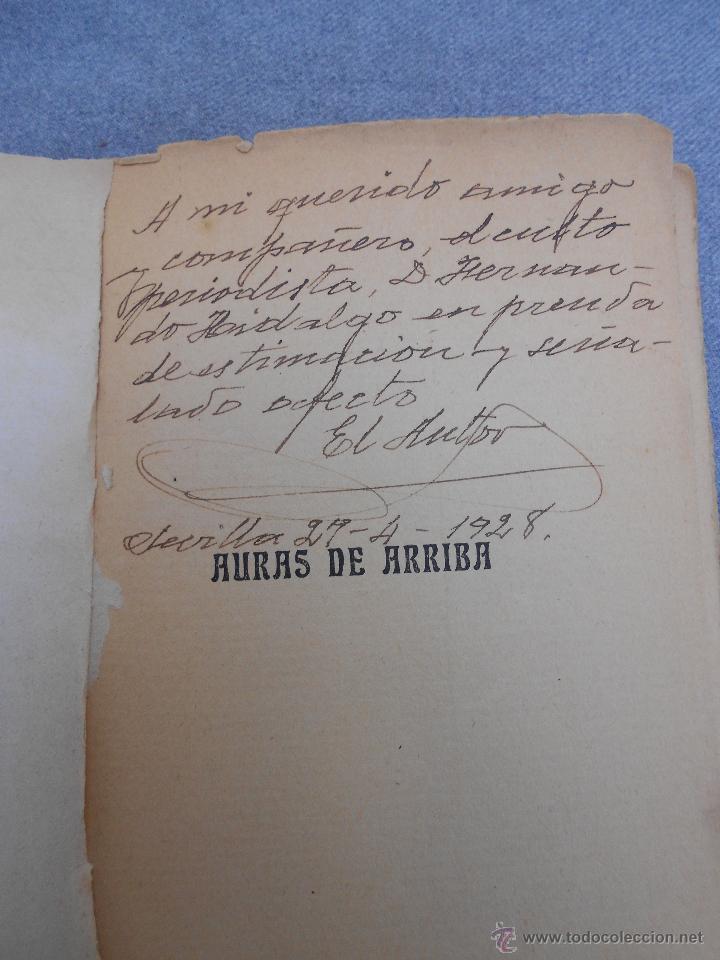 A mi querido amigo
y compañero, el culto
periodista, D Hernan-
do Hidalgo en prenda
de estimacion y seña-
lado afecto
El Autor
Sevilla 27-4-1928.
AURAS DE ARRIBA
© www.todocoleccion.net